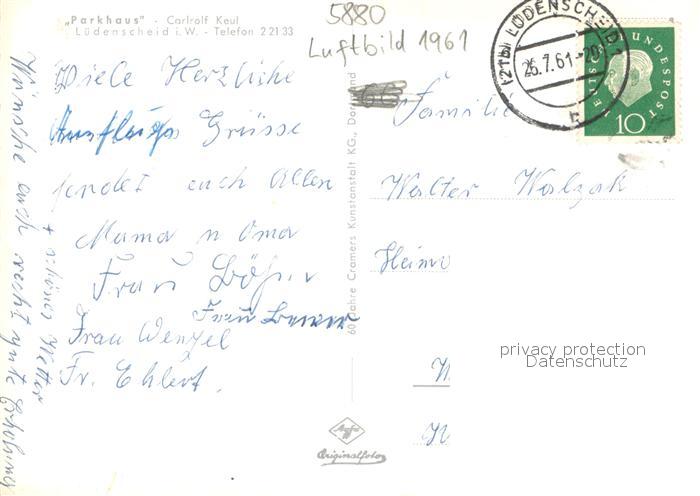 „Parkhaus" - Carlrolf Keul
Lüdenscheid i.W. - Telefon 22133
5880
Luftbild 1961
(21b) LÜDENSCHEID 1
25.7.61-20
h
DEUTSCHE BUNDESPOST
10
Viele Herzliche
Ausflugs Grüsse
sendet euch Allen
Mama u Oma
Frau
Frau
Frau Wenzel
Fr. Ehlert.
Wünsche auch recht gute Erholung
+ schönes Wetter
60 Jahre Cramers Kunstanstalt KG., Dortmund
Familie
Walter Walzak
Heim
privacy protection
Datenschutz
Agfa
Originalfoto